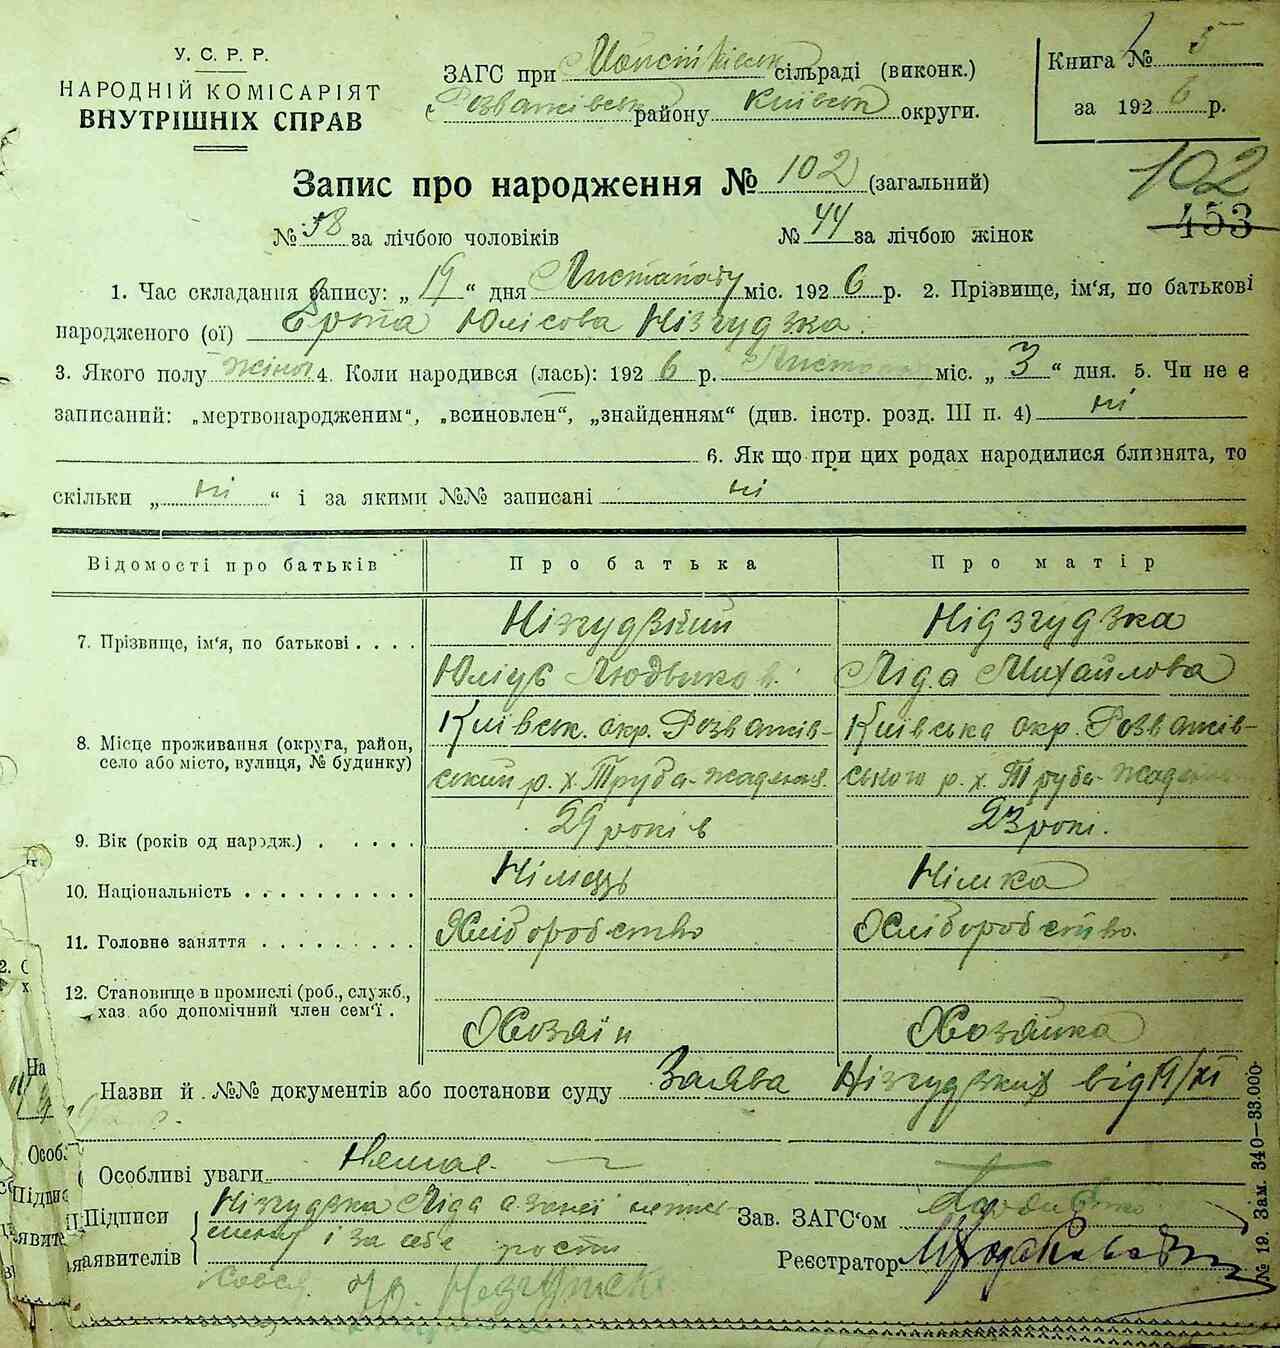 У. С. Р. Р.
НАРОДНІЙ КОМІСАРІЯТ
ВНУТРІШНІХ СПРАВ
ЗАГС при сільраді (виконк.)
Розважівськ району Київськ округи.
Книга № 5
за 1926 р.
Запис про народження № 102 (загальний)
102
453
№ 58 за лічбою чоловіків № 44 за лічбою жінок
1. Час складання запису: „19“ дня Листападу міс. 1926 р. 2. Прізвище, ім‘я, по батькові
народженого (ої) Юлісова Нізгудзка.
3. Якого полу жіноч 4. Коли народився (лась): 1926 р. Листопа міс. „3“ дня. 5. Чи не є
записаний: „мертвонародженим“, „всиновлен“, „знайденням“ (див. інстр. розд. III п. 4) ні
6. Як що при цих родах народилися близнята, то
скільки „ні“ і за якими №№ записані ні
Відомості про батьків Про батька Про матір
7. Прізвище, ім‘я, по батькові . . . . Нізгудзкий Нідзгудзка
Юліус Людвиков. Ліда Михайлова
8. Місце проживання (округа, район, село або місто, вулиця, № будинку) Київськ. окр. Розважів- Київська окр. Розважів-
ський р. х. Труба- ського р. х. Труба-
9. Вік (років од народж.) . . . . . 29 років 23 рокі.
10. Національність . . . . . . . . . . Німець Німка
11. Головне заняття . . . . . . . . . Хліборобство Хліборобство.
12. Становище в промислі (роб., служб.,
хаз. або допомічний член сем‘ї . Хозяїн Хозяйка
Назви й №№ документів або постанови суду Заява Нізгудзких від 19/XI
Особливі уваги Немає.
Підписи Нізгудзка Ліда а
заявителів і за себе рости
Зав. ЗАГС‘ом
Реєстратор
№ 19. Зам. 340—33.000